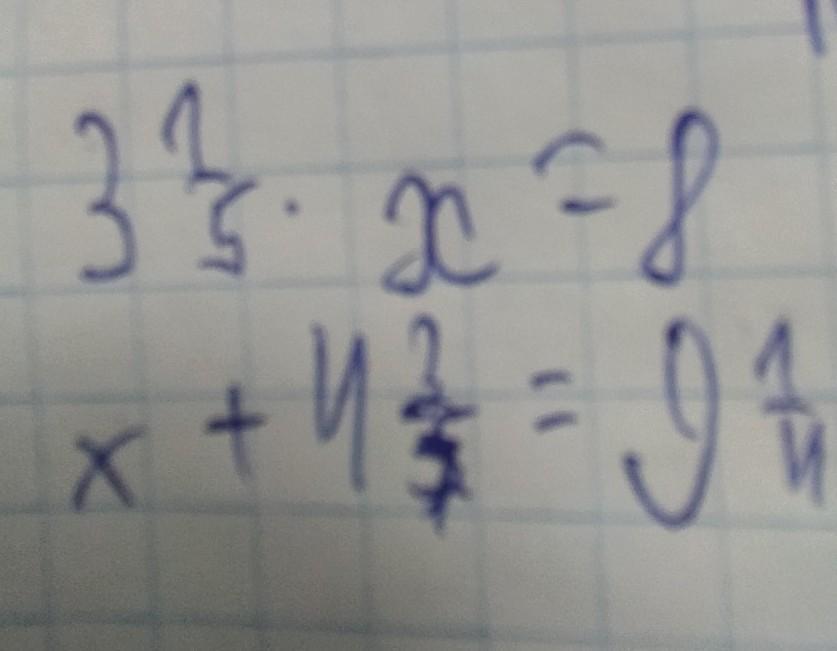 3 1/5 · x = 8
x + 4 2/7 = 9 1/4